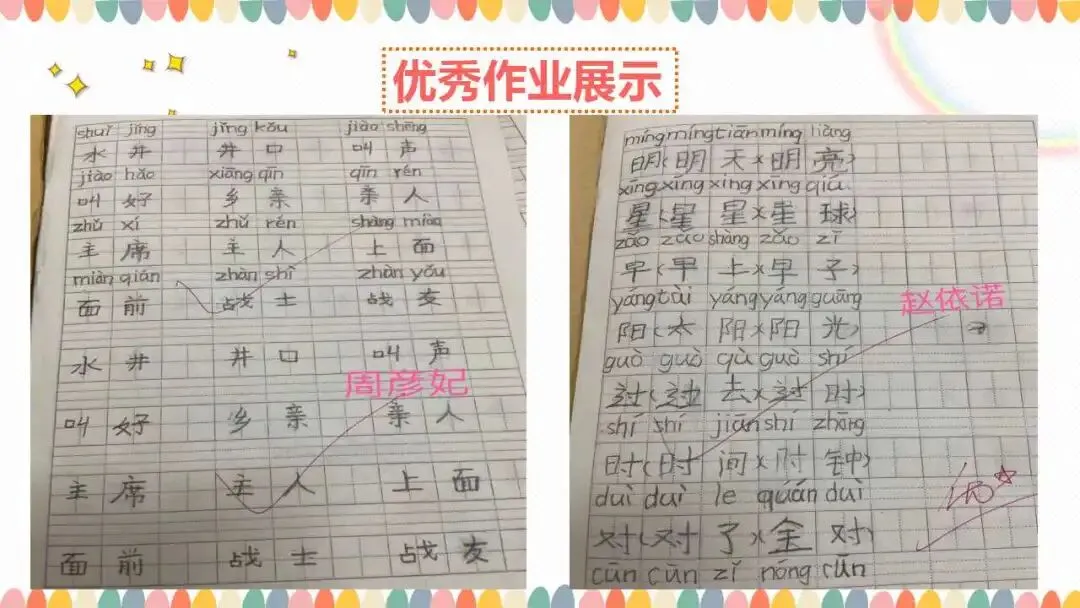 优秀作业展示
shuǐ jǐng jǐng kǒu jiào shēng
水 井 井 口 叫 声
jiào hǎo xiāng qīn qīn rén
叫 好 乡 亲 亲 人
zhǔ xí zhǔ rén shàng miàn
主 席 主 人 上 面
miàn qián zhàn shì zhàn yǒu
面 前 战 士 战 友
水 井 井 口 叫 声
周彦妃
叫 好 乡 亲 亲 人
主 席 主 人 上 面
面 前 战 士 战 友
míng míng tiān míng liàng
明(明 天×明 亮)
xīng xīng xing xīng qiú
星(星 星×星 球)
zǎo zǎo shàng zǎo zǐ
早(早 上×早 子)
yáng tài yáng yáng guāng
赵依诺
阳(太 阳×阳 光)
guò guò qù guò shí
过(过 去×过 时)
shí shí jiān shí zhōng
时(时 间×时 钟)
duì duì le quán duì
优
对(对 了×全 对)
cūn cūn zǐ nóng cūn